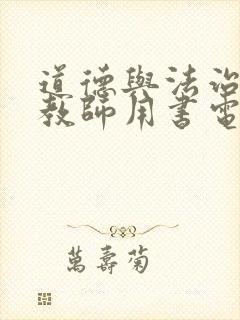 道德與法治
教師用書電
萬壽菊